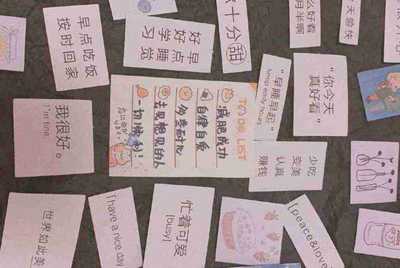 早点吃饭
按时回家
好早
好点
学睡
习觉
十分甜
么好看
月半啊
天曾快
"早睡早起"
"你今天
真好看"
我很好。
I'm fine.
TO DO LIST
减肥成功
自律自爱
一切顺利!
少吃
变美
认真
赚钱
世界如此美
I have a nice day
忙着可爱
[busy]
[peace&love